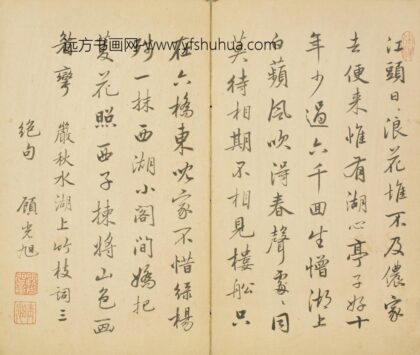 远方书画网 www.yfshuhua.com
江頭日〻浪花堆不及儂家
去便来惟有湖心亭子好十
年少過六千回生憎湖上
白蘋風吹得春聲處〻同
莫待相期不相見樓船只
在六橋東家不惜綠楊
一抹西湖小閣間嬌把
菱花照西子揀將山色画
眉彎 嚴秋水湖上竹枝詞三
絕句 顧光旭